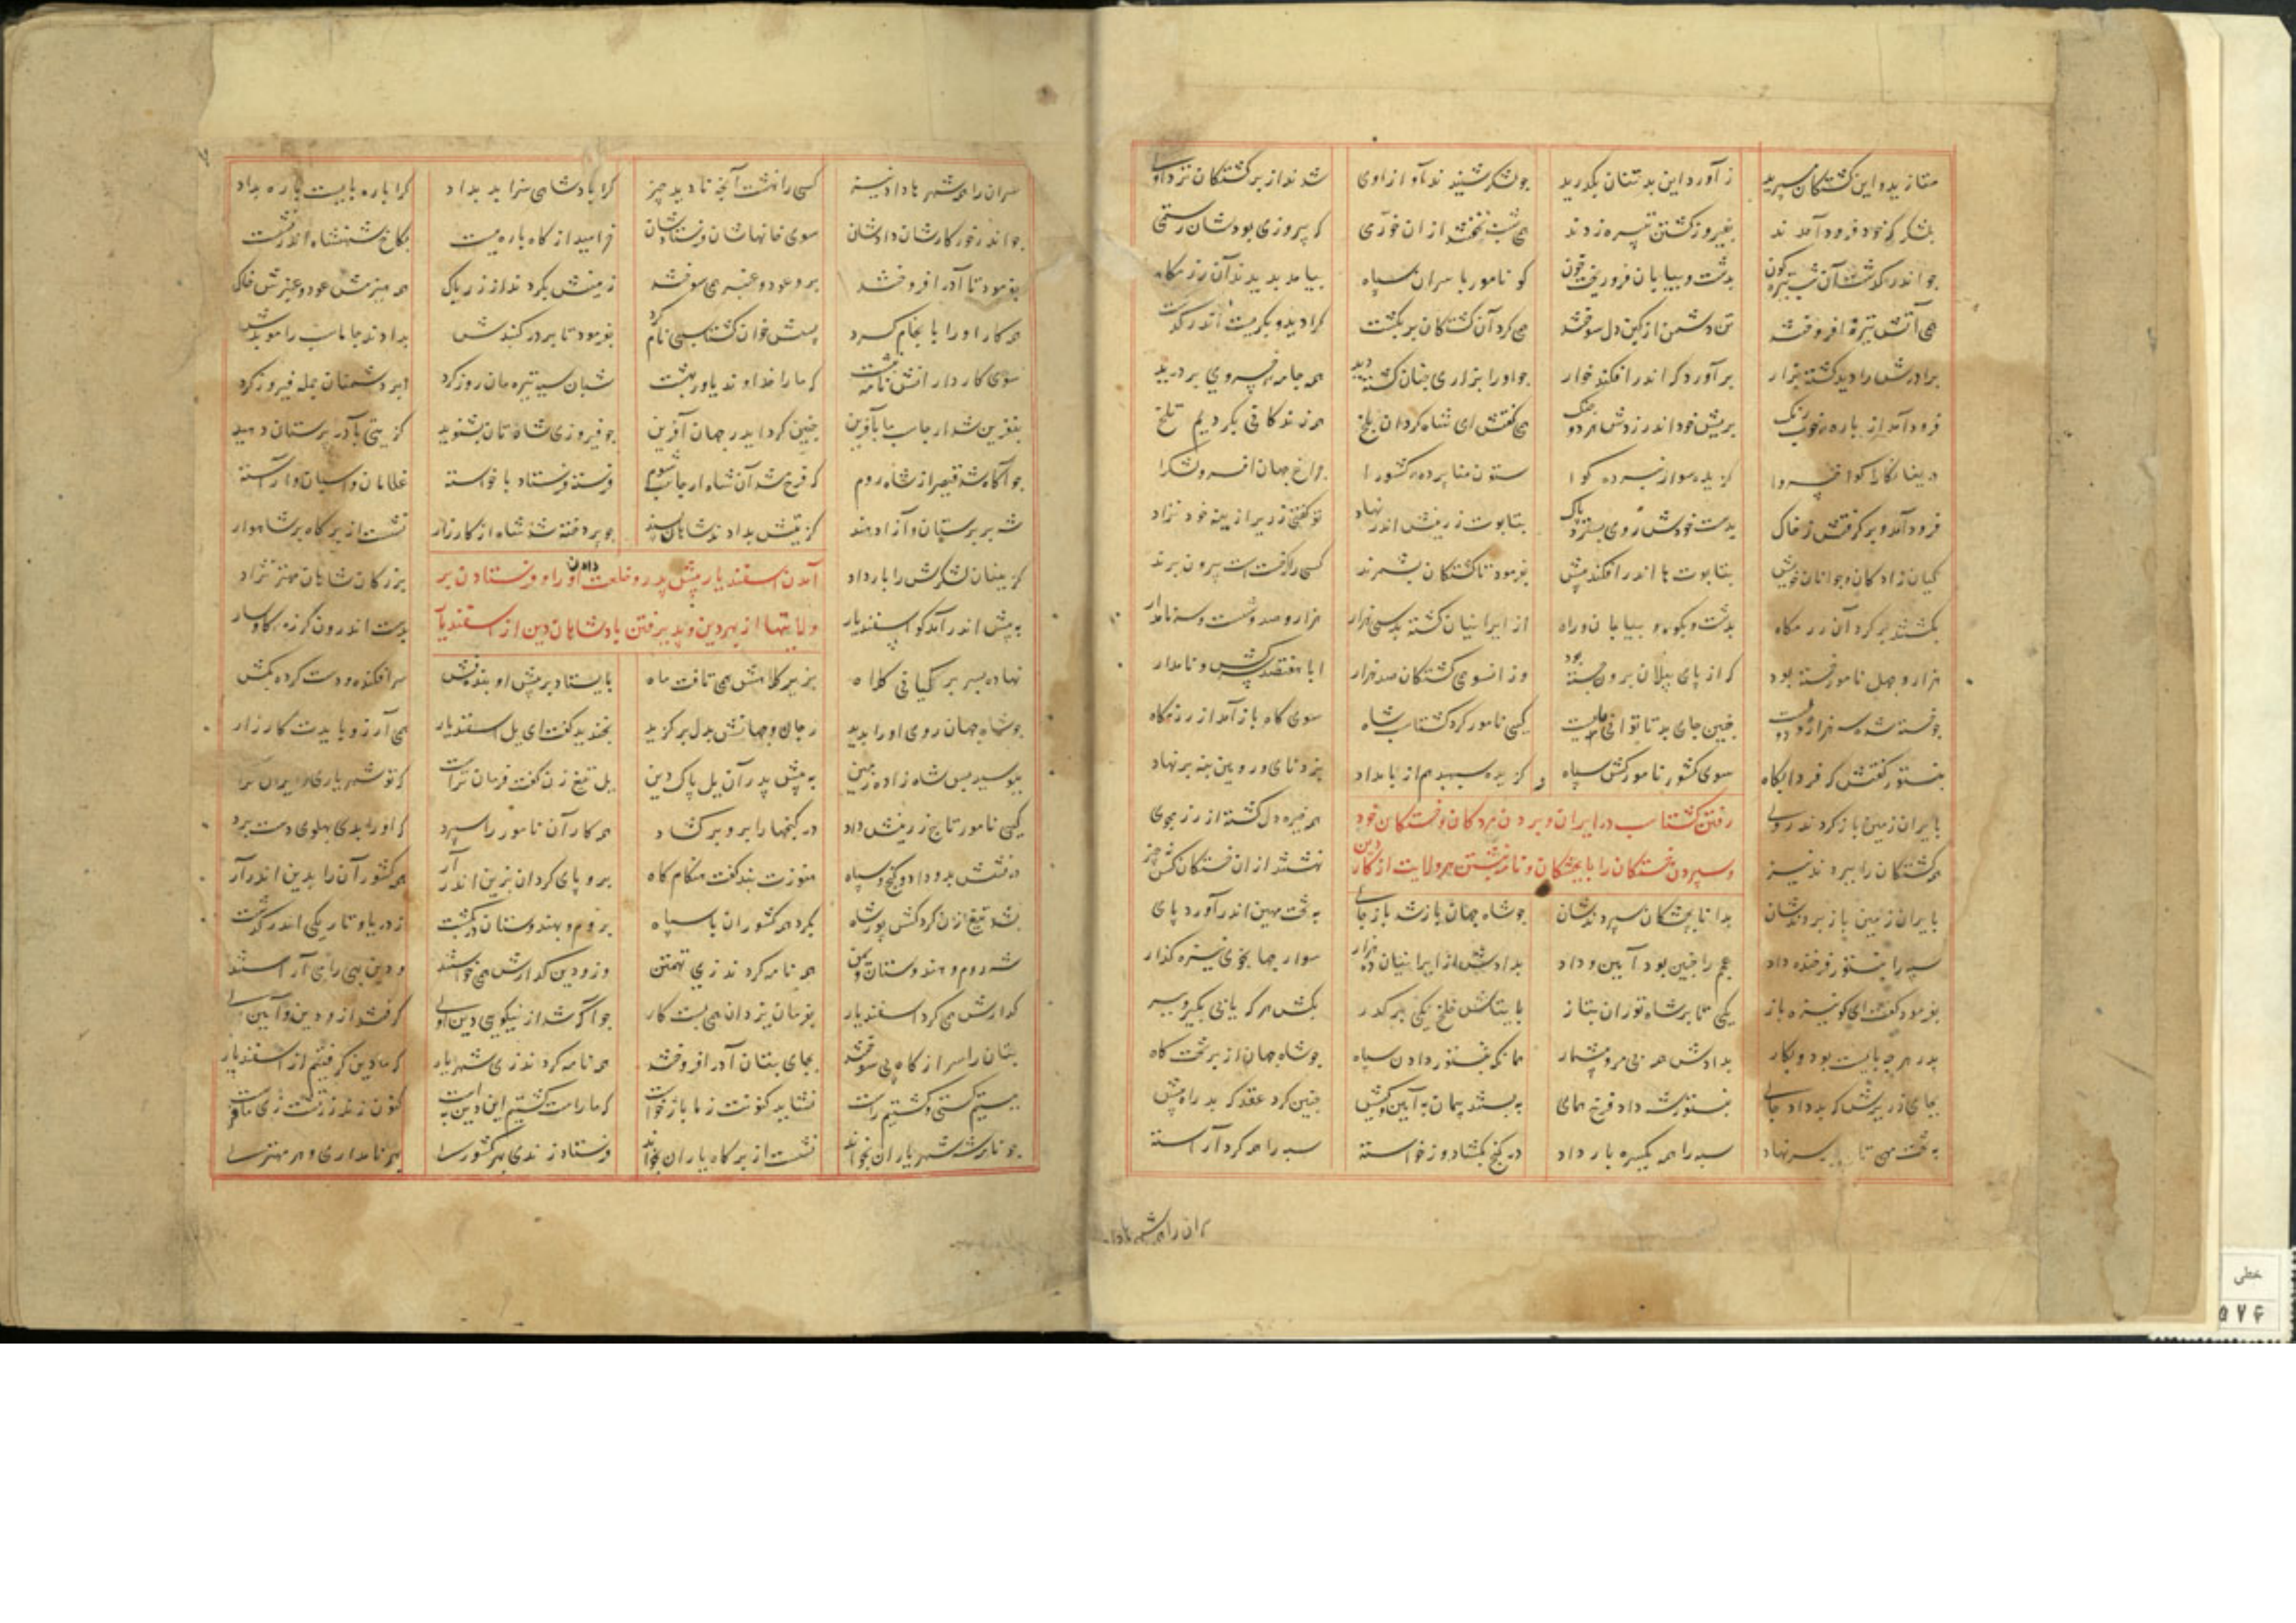 متازید و این کشتگان مسپرید ز آورد این بدتنان بگذرید چو لشکر شنیدند آواز اوی شدند از بر کشتگان نزد اوی
بلشکر که خود فرود آمدند بفیروز گشتن تبیره زدند همی شب نخفتند از ان خرمی که پیروزی بودشان رستمی
چو اندر گذشت آن شب تیره کون بدشت و بیابان فرو ریخت خون کو نامور با سران سپاه بیامد بدیدند آن رزمگاه
همی کرد آن کشتگان بر بگشت کرا دید و بگریست اندر گذشت
برادرش را دید کشته بزار بر آوردگه اندر افکنده خوار چو او را بزاری چنان کشته دید همه جامه خسروی بر درید
فرود آمد از باره بریش خود اندر زدش هر دو چنگ همی گفتش ای شاه کردان بلخ همه زندگانی بکردیم تلخ
دریغا سوارا گزیده سوار نبرده کوا ستون منا پرده کشورا چراغ جهان افسر لشکرا
فرود آمد و بر گرفتش ز خاک بدست خودش روی بسترد پاک بتابوت زرینش اندر نهاد تو گفتی زریر از بنه خود نزاد
کیان زادگان و جوانان خویش بتابوت ها اندر افکند پیش بفرمود تا کشتگان بشمرند کسی را که خستست بیرون برند
بگشتند بر کرد آن رزمگاه بدشت و بکوه و بیابان و راه از ایرانیان کشته بد سی هزار هزار و صد و شست و سه نامدار
هزار و چهل نامور خسته بود که از پای پیلان برون جسته بود وز انسوی کشتگان صد هزار ابا هفتصد سرکش و نامدار
چو خسته شده سه هزار و دویست چنین جای بد تا توانی مایست کیی نامور کرد گشتاسپ شاه سوی گاه باز آمد از رزمگاه
بنستور گفتش که فردا پگاه سوی کشور نامور کش سپاه گزیده سپهبد هم از بامداد بزد نای و رویین بنه بر نهاد
بایران زمین باز کردند روی رفتن گشتاسب در ایران و بردن مردگان و خستگان خود همه خیره دل کشته از رزمجوی
همه کشتگان را ببردند نیز و سپردن خستگان را با پزشکان و نامه نبشتن بهر ولایت از کار دین نهشتند از ان خستگان کس بچیز
بایران زمین باز بردندشان بدانا پزشکان سپردندشان چو شاه جهان باز شد باز جای به تخت مهین اندر آورد پای
سپه را بنستور فرخنده داد عجم را چنین بود آیین و داد بدادش از ایرانیان ده هزار سوار جهانجوی نیزه گذار
بفرمود گفت ای کو نیزه باز یکی تا بر شاه توران بتاز بایتاش خلخ یکی بر گذر بکش هر که یابی بکین پدر
ز هر چه بایست بود و بکار بدادش همه بی مر و بی شمار همانگه نستور دادن سپاه چو شاه جهان از بر تخت گاه
بجای زریرش که بد داد جای به بستند پیمان به آیین و کیش چنین کرد عقد که بد راه پیش
به تخت مهی تاج بر سر نهاد سپه را همه یکسره بار داد در گنج بگشاد وز خواسته سپه را همه کرد آراسته
سران را همه شهرها داد نیز کسی را نهشت آنچه نا دید چیز کرا پادشاهی سزا بد بداد کرا باره بایست باره بداد
چو اندر خور کارشان دادشان سوی خانهاشان فرستادشان خرامید از گاه باره بست بکاخ شهنشاه اندر نشست
بفرمود تا آذر افروختند برو عود و عنبر همی سوختند زمینش بکردند از زر پاک همه هیزمش عود و عنبرش خاک
همه کار او را باانجام کرد پسش خوان گشتاسپی نام کرد بفرمود تا بر در گنبدش بدادند جاماسب را موبدش
سوی کارداران نامه نبشت که ما را خداوند یاور بهشت شبان سیه تیره مان روز کرد ابر دشمنان جمله فیروز کرد
بنفرین شد ارجاسب با آفرین چنین کرد ایدر جهان آفرین چو فیروزی شاهتان بشنوید گزیتی بآذر پرستان دهید
چو آگاه شد قیصر از شاه روم که فرخ شد آن شاه ارجاسب شوم فرسته فرستاد با خواسته غلامان و اسپان آراسته
شه بربرستان و آزاد هند گزیتش بداد شاهان سند چو پردخته شد شاه از کارزار نشست از بر گاه بر شاهوار
گزینان لشکرش را بار داد آمدن اسفندیار پیش پدر و خلعت دادن او را و فرستادن بر بزرگان شاهان مهتر نژاد
به پیش اندر آمد کو اسفندیار ولایتها از بهر دین و پذیرفتن پادشاهان دین از اسفندیار بدست اندرون گرزه گاوسار
نهاده بسر بر کیانی کلاه بزیر کلاهش همی تافت ماه بایستاد بر پیش او بنده فش سر افکنده و دست کرده بکش
چو شاه جهان روی او را بدید ز جان و جهانش بدل بر گزید بخندید گفت ای یل اسفندیار همی آرزو بایدت کارزار
ببوسید پس شاه زاده زمین به پیش پدر آن یل پاک دین یل تیغ زن گفت فرمان تراست که تو شهریاری و ایران تراست
کیی نامور تاج زرینش داد در گنجها را برو بر گشاد همه کار آن نامور را سپرد که او را بدی پهلوی دست برد
درفشش بدو داد و گنج و سپاه هنوزت نبد گفت هنگام گاه برو پای کردان بزین اندر آر همه کشوران را بدین اندر آر
بشد تیغ زن گردکش پور شاه بگرد همه کشوران با سپاه بروم و بهندوستان در بگشت ز دریا و تاریکی اندر گذشت
شه روم و هندوستان و یمن همه نامه کردند زی تهمتن وزو دین گزارش همی خواستند و دین بهی را بیآراستند
گذارش همی کرد اسفندیار بفرمان یزدان همی بست کار چو آگه شد از نیکویی دین اوی گرفتند ازو دین و آیین اوی
بتان را سر از گاه می سوختند بجای بتان آذر افروختند همه نامه کردند زی شهریار که ما دین گرفتیم از اسفندیار
ببستیم کستی نشاید کنونت ز ما باژ خواست که ما راست گشتیم این دین به است کنون زند زردشت زی ما فرست
چو نامه شهریاران بخواند نشست از بر گاه یاران بخواند فرستاد زندی بهر کشوری بهر نامداری و هر مهتری
سران را همه شهرها داد
خطی
۵۷۴